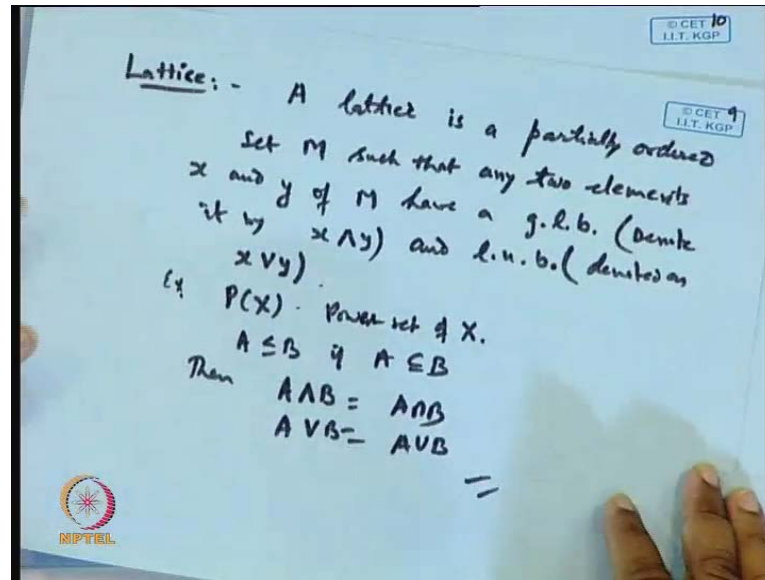 © CET 10
I.I.T. KGP
© CET 9
I.I.T. KGP
Lattice :- A lattice is a partially ordered
set M such that any two elements
x and y of M have a g.l.b. (Denote
it by x ∧ y) and l.u.b. (denoted as
x ∨ y).
Ex P(X). Power set of X.
A ≤ B if A ⊆ B
Then A ∧ B = A ∩ B
A ∨ B = A ∪ B
NPTEL